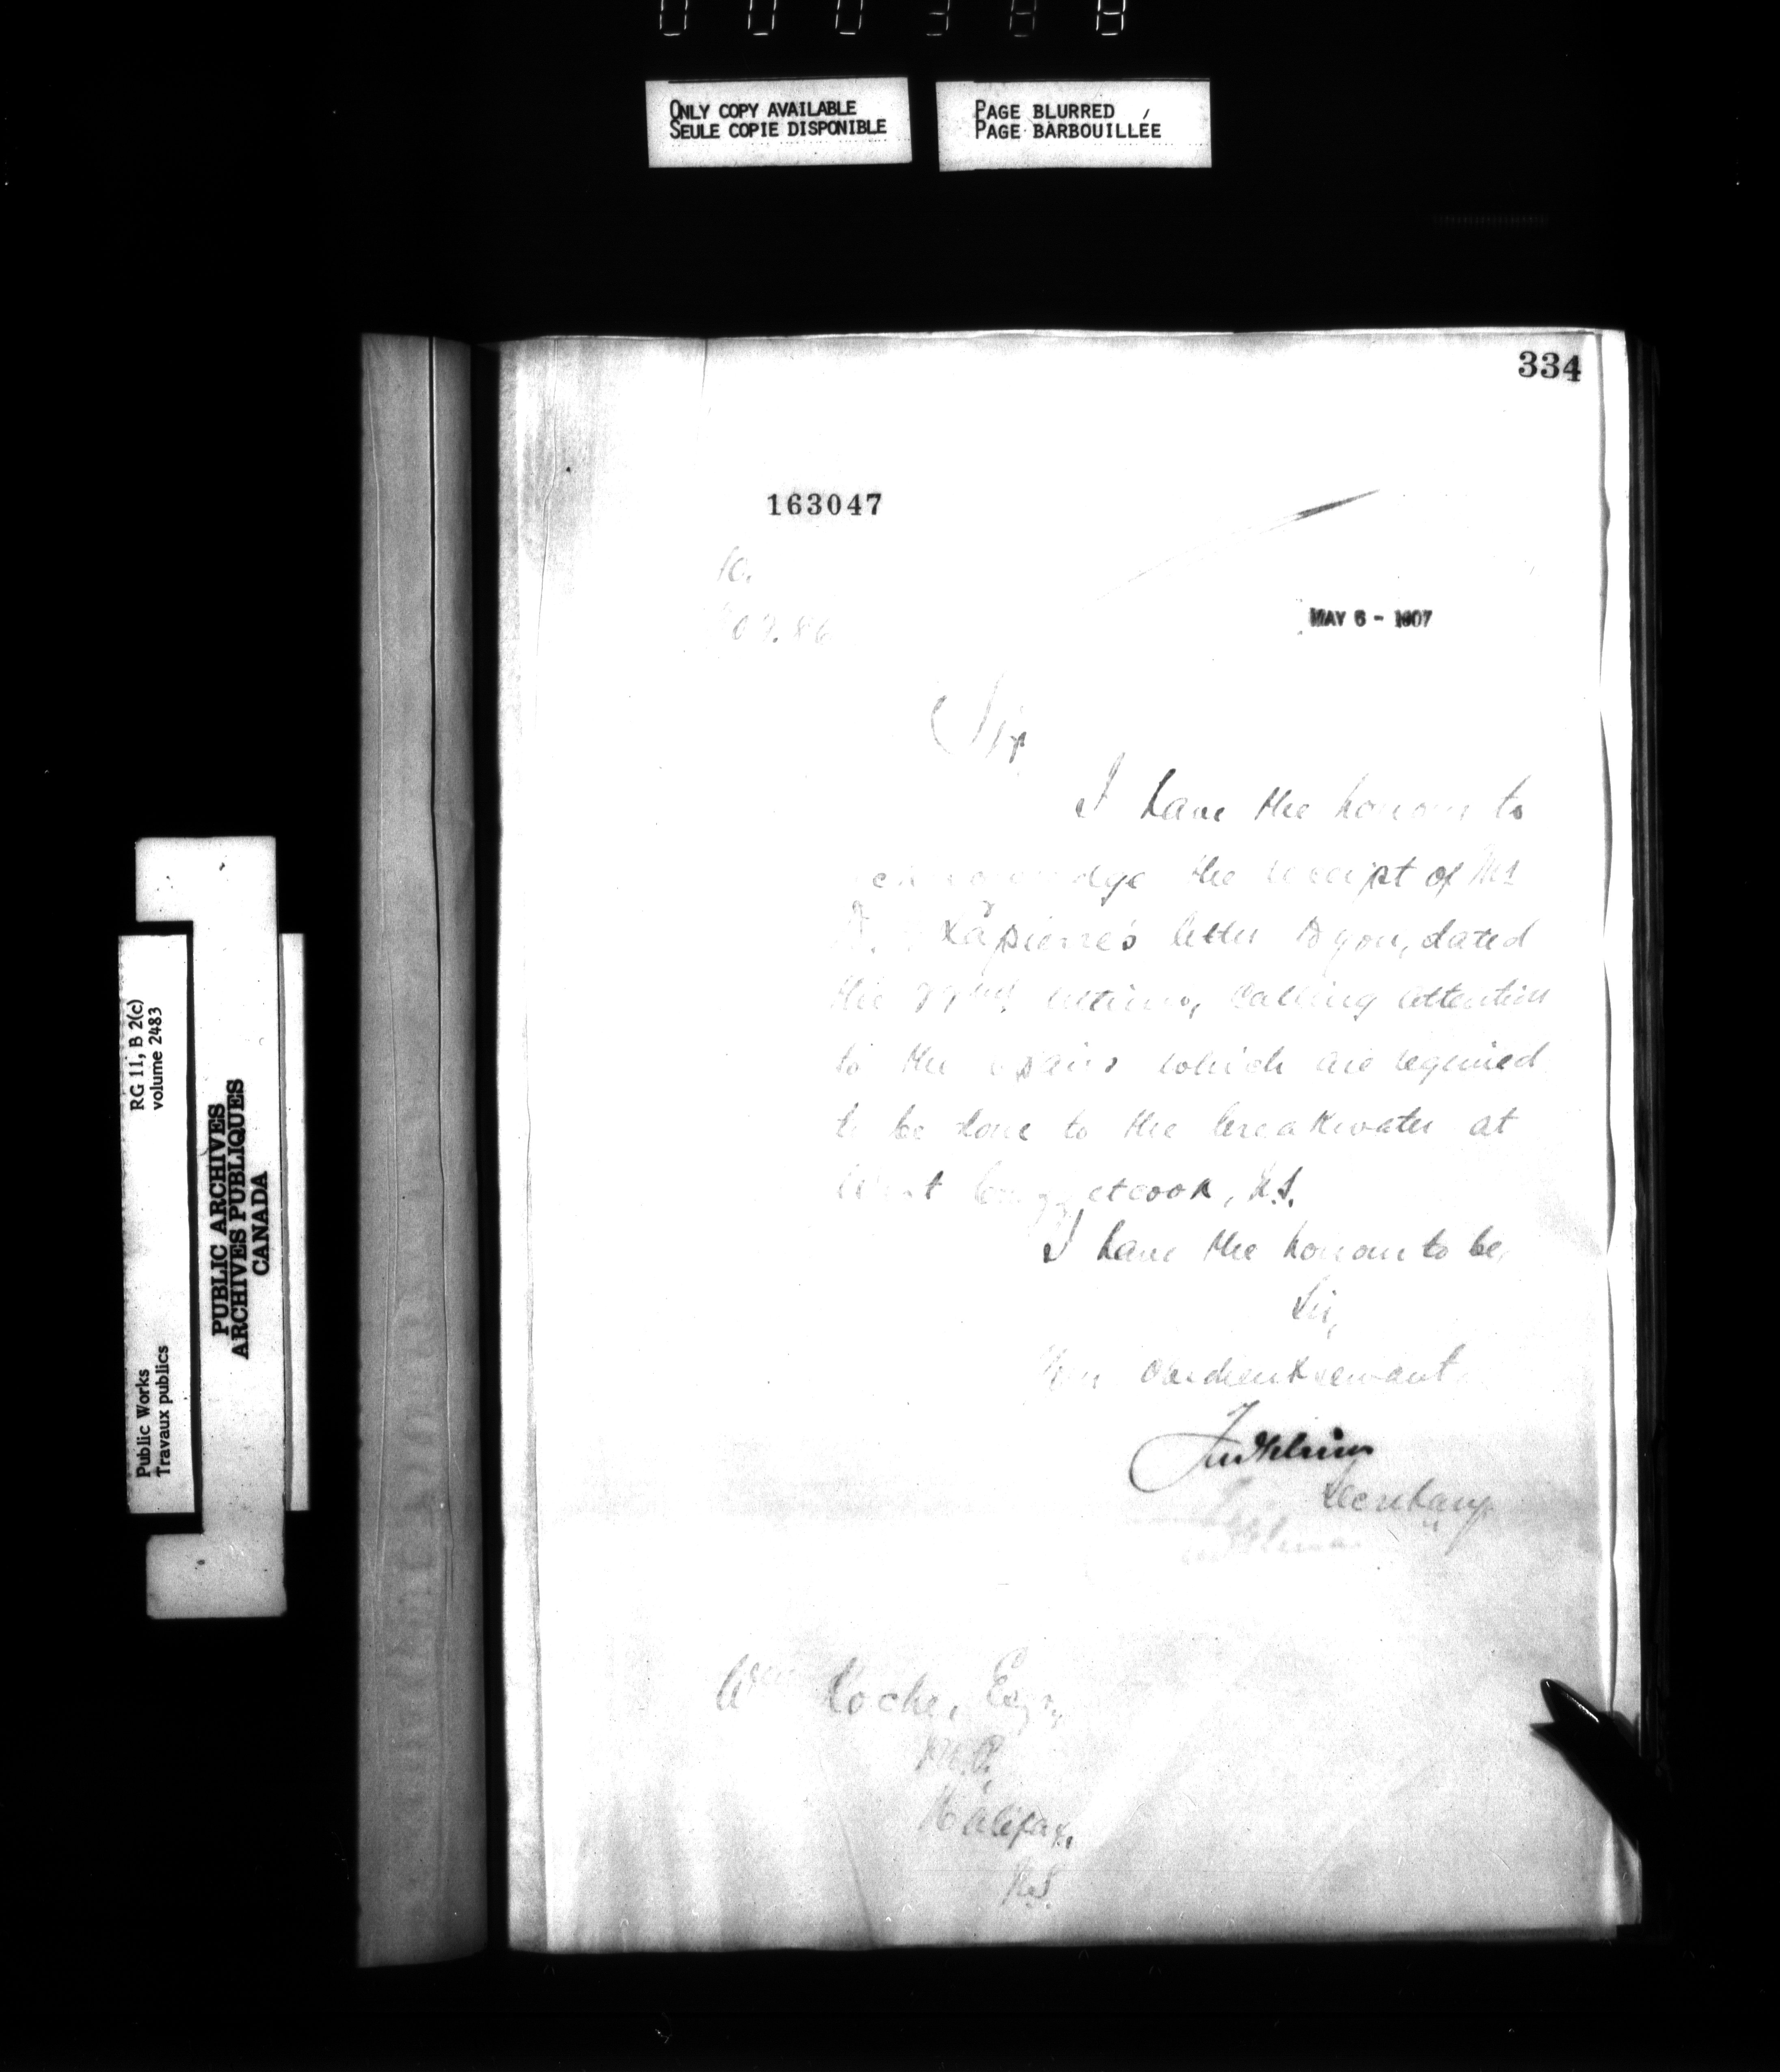 000388
ONLY COPY AVAILABLE
SEULE COPIE DISPONIBLE
PAGE BLURRED
PAGE BARBOUILLÉE
334
163047
MAY 6 - 1907
Sir
I have the honour to
the receipt of
Lapierre's letter to you, dated
the ultimo, calling attention
to the repairs which are required
to be done to the breakwater at
West etcook, N.S.
I have the honour to be,
Sir,
Your obedient servant
Secretary
Wm Roche, Esqr,
M.P.
Halifax,
N.S.
RG 11, B 2(c)
volume 2483
Public Works
Travaux publics
PUBLIC ARCHIVES
ARCHIVES PUBLIQUES
CANADA